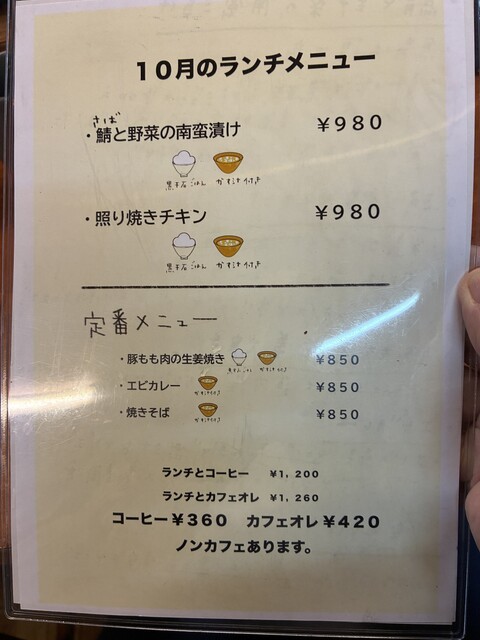 10月のランチメニュー
さば
・鯖と野菜の南蛮漬け ¥980
ごはん かす汁付き
・照り焼きチキン ¥980
ごはん かす汁付き
定番メニュー
・豚もも肉の生姜焼き ¥850
・エビカレー ¥850
・焼きそば ¥850
ランチとコーヒー ¥1,200
ランチとカフェオレ ¥1,260
コーヒー¥360 カフェオレ¥420
ノンカフェあります。